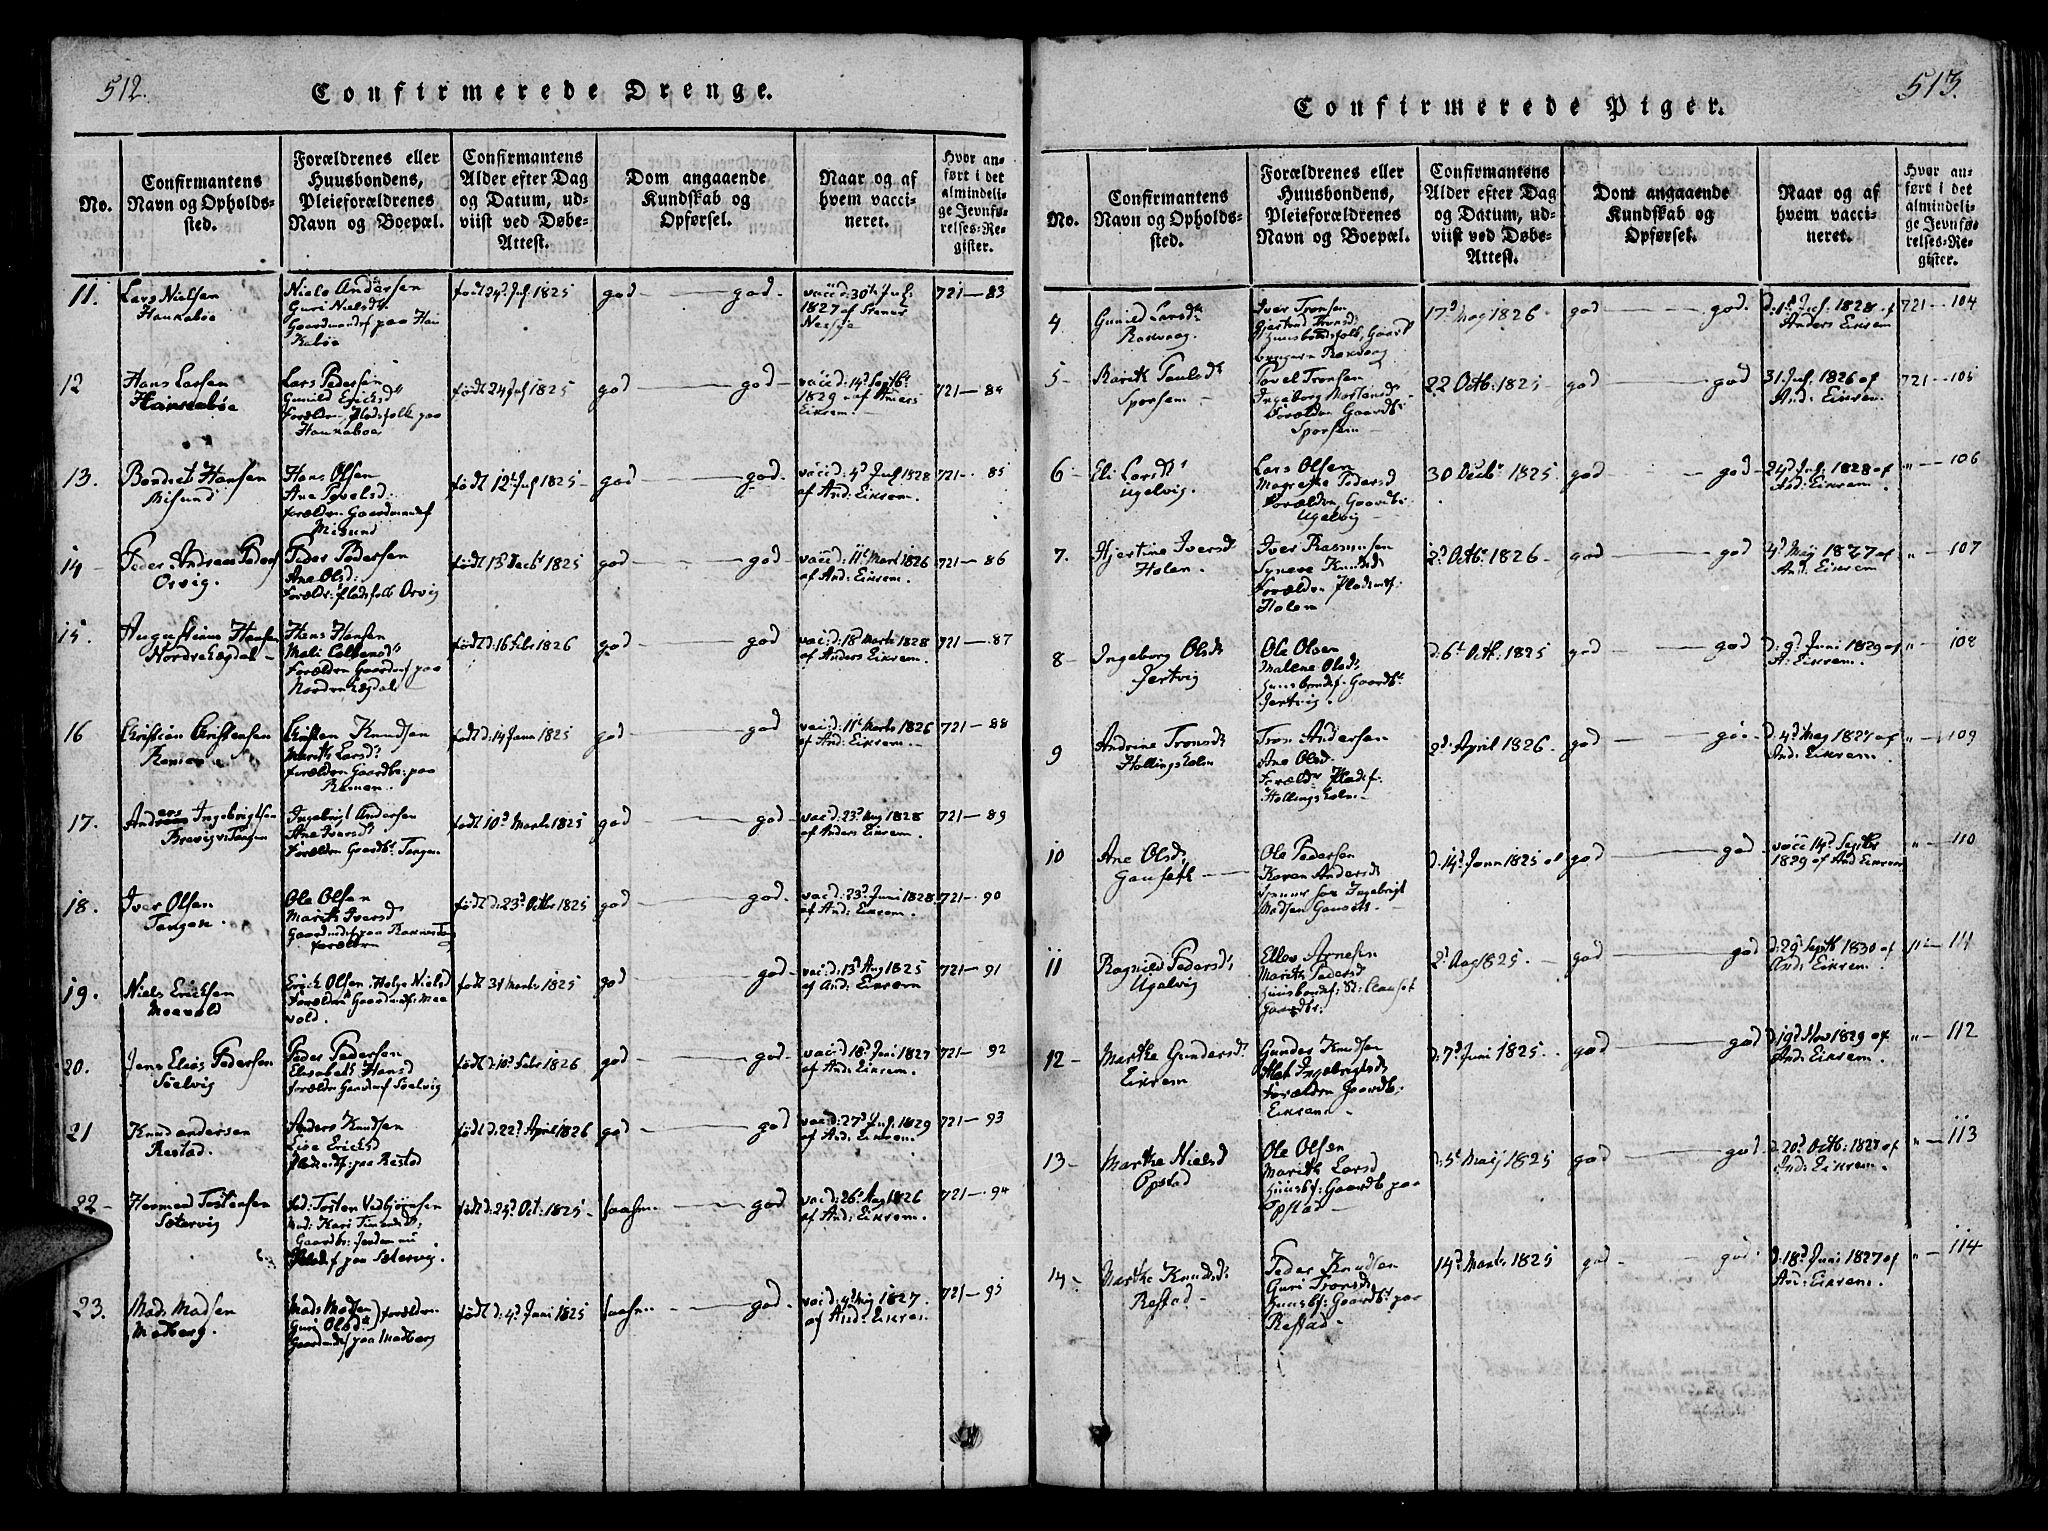 512.
Confirmerede Drenge.
No.
Confirmantens
Navn og Opholds-
sted.
Forældrenes eller
Huusbondens,
Pleieforældrenes
Navn og Boepæl.
Confirmantens
Alder efter Dag
og Datum, ud-
viist ved Døbe-
Attest.
Dom angaaende
Kundskab og
Opførsel.
Naar og af
hvem vacci-
neret.
Hvor an-
ført i det
almindeli-
ge Jevnfø-
relses-Re-
gister.
11.
Lars Nielsen
Haukabøe
Niels Andersen
Guri Nielsdr
Gaardmandsf paa Hau
kabøe
født 24d Jul. 1825
god — god.
vaccd: 30te Jul:
1827 af Stener
721 — 83
12
Hans Larsen
Haukabøe
Lars Pedersen
Gunild Ericksdr
Forældr. Pladsfolk paa
Haukabøe
født 24 Jul 1825
god — god
vaccd: 14d Septbr
1829 af Anders
Eikrem.
721 — 84
13.
Bendict Hansen
Misund
Hans Olsen
Ane Povelsd.
forældre Gaardmandsf
Misund
født 12t Jul 1825
god — god.
vaccd: 4d Jul 1828
af And: Eikrem.
721 — 85
14
Peder Andreas Peders
Orvig.
Peder Pedersen
Ane Olsd:
Forældr: pladsfolk Orvig
født 13 Decbr 1825
god — god
vaccd: 11t Mart 1826
af And: Eikrem.
721 — 86
15.
Augustinus Hansen
Nordre Lægdal
Hans Hansen
Mali
Forældre Gaardmf paa
Nordre Lægdal
født d: 16 Febr 1826
god — god
vacd: 18d Marts 1828
af Anders Eikrem.
721 — 87
16
Christian Christensen
Christen Knudsen
Marith Larsdr
forældre Gaardbr: paa
født d: 14 Janu 1825
god — god
vacd: 11t Marts 1826
af And: Eikrem.
721 — 88
17.
Anders Ingebrigtsen
Tangen
Ingebrigt Andersen
Ane Iversdr
Forældre Gaardbr Tangen
født 10d Marts 1825
god — god
vacd: 23d Maj 1828
af Anders Eikrem.
721 — 89
18.
Iver Olsen
Tangen.
Ole Olsen
Marith Iversd
Gaardmdsf paa
forældre
født d: 23d Octbr 1825
god — god.
vacd: 23d Juni 1828
af And: Eikrem.
721 — 90
19.
Niels Ericksen
Moevold
Erick Olsen. Helge Nielsd
Forældre Gaardmdf: Moe
vold.
født 31 Marts 1825
god — god
vacd: 13d Aug 1825
af And: Eikrem
721 — 91
20.
Jens Elias Pedersen
Soelvig
Peder Pedersen
Elisabeth Hansd
forældre Gaardmf Soelvig
født d: 10d Febr 1826
god — god.
vacd: 18d Juni 1827
af And: Eikrem.
721 — 92
21
Knud Andersen
Restad.
Anders Knudsen
Lise Ericksd
Pladsmdsf: paa Restad
født d: 22d April 1826
god — god
vacd: 27d Jul. 1829
af And: Eikrem.
721 — 93
22
Herman Tostensen
Sætervig
Fad: Tosten
Mod: Kari
Gaardbr: Jendem nu
Pladsf paa Sætervig.
født d: 23d Oct: 1825
saasn. — god
vacd: 26d Aug 1826
af And: Eikrem.
721 — 94
23.
Mads Madsen
Modberg.
Mads Madsen
Guri Olsdr } forældre
Gaardmdsf paa Modberg
født d: 4d Juni 1825
saasn — god.
vacd: 4d Maj 1827.
af And: Eikrem.
721 — 95
513.
Confirmerede Piger.
No.
Confirmantens
Navn og Opholds-
sted.
Forældrenes eller
Huusbondens,
Pleieforældrenes
Navn og Boepæl.
Confirmantens
Alder efter Dag
og Datum, ud-
viist ved Døbe-
Attest.
Dom angaaende
Kundskab og
Opførsel.
Naar og af
hvem vacci-
neret.
Hvor an-
ført i det
almindeli-
ge Jevnfø-
relses-Re-
gister.
4
Gunild Larsdr
Rakvaag.
Iver Tronsen
Gjertrud Tronsd:
Huusbondsfolk, Gaard
brugere Rakvaag
17d Maj 1826
god — god.
d: 1d Jul. 1828 af
Anders Eikrem
721 — 104
5
Marith Poulsdr
Sporsem
Povel Tronsen
Ingeborg Mortensd
Forældre Gaardb:
Sporsem
22 Octb: 1825
god — god
31 Jul. 1826 af
And: Eikrem.
721 — 105
6
Eli Larsdr
Ugelvig.
Lars Olsen
Magrethe Pedersd
Forældre, Gaardb:
Ugelvig
30 Decbr 1825
god — god
24d Jul. 1828 af
And: Eikrem.
" — 106
7.
Hjertine Iversdr
Holen
Iver Rasmusen
Syneve Knudsd
Forældre Pladsmf:
Holem
2d Octbr 1826
god — god
4d Maj 1827 af
And: Eikrem
" — 107
8
Ingeborg Olsdr
Jertvig
Ole Olsen
Malene Olsdr
Huusbondsf: Gaardbr
Jertvig.
d: 6t Octbr: 1825
god — god
d: 9d Juni 1829 af
A: Eikrem.
" — 108
9
Andrine Tronsdr
Hollingsholm
Tron Andersen
Ane Olsd.
Forældr Pladsf:
Hollingsholm
2d April 1826
god — god
d: 4d Maj 1827 af
And: Eikrem.
" — 109
10
Ane Olsdr
Gauseth
Ole Pedersen
Karen Andersdr
tjener hos Ingebrigt
Madsen Gauseth
d: 14d Janu 1825
god — god
vacc 14d Septbr
1829 af And Eikrem
" — 110
11
Ragnild Pedersdr
Ugelvig
Ellev Arnesen
Marith Pedersd
Huusbondsf:
Gaardbr:
2d Aug 1825.
god — god
d: 29d Septb 1830 af
And: Eikrem.
" — 111
12
Marthe Gundersdr
Eikrem
Gunder Knudsen
Ingebrigtsdr
Forældre Gaardb:
Eikrem
d: 7d Juni 1825.
god — god
d: 19d Nov 1829 af
And: Eikrem.
" — 112
13
Marthe Nielsd
Opstad
Ole Olsen
Marith Larsd
Huusbf: Gaardb paa
Opstad
d: 5t Maij 1825
god — god
d: 20d Octb: 1827 af
And: Eikrem.
" — 113
14
Marthe Knudsdr
Restad
Peder Knudsen
Guri Tronsdr
Huusbf: Gaardbr paa
Restad
14d Marts 1825
god — god.
d: 18d Juni 1827 af
And: Eikrem.
" — 114